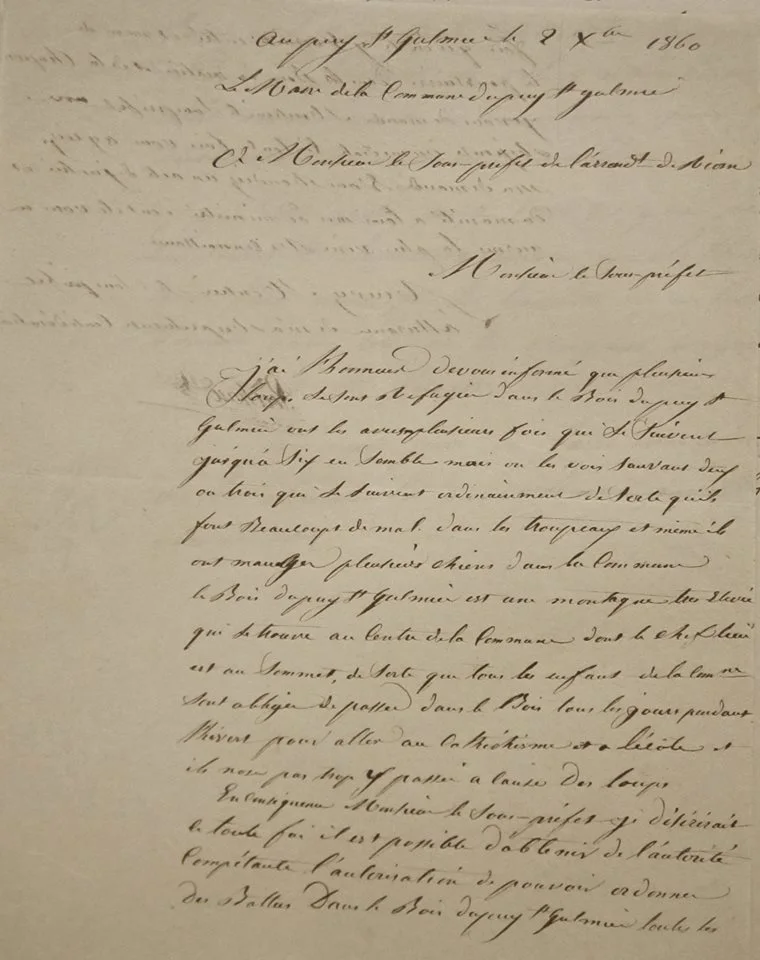 Au puy St Gulmier le 2 Xbre 1860
Le Maire de la Commune du puy St gulmier
A Monsieur le Sous-préfet de l'arrondt de Riom
Monsieur le Sous-préfet
j'ai l'honneur de vous informé que plusieurs
Loups se sont Refugier dans le Bois du puy St
Gulmier ont les a vu plusieurs fois qui se suivent
jusqu'a Six en semble mais on les vois souvant deux
ou trois qui se suivent ordinairement de sorte qu'ils
font Beaucoupt de mal dans les troupeaux et même ils
ont manger plusieurs chiens dans la Commune
le Bois du puy St Gulmier est une montagne tres Elevée
qui se trouve au Centre de la Commune dont le chef lieu
est au Sommet, de sorte que tous les enfant de la Comne
sont obliger de passer dans le Bois tous les jours pendant
l'hivert pour aller au Cathéchisme et a l'école et
ils nose pas trop y passer a cause des loups
En Consiquence Monsieur le Sous-préfet je désirerait
se toute foi il est possible d'abtenir de l'autorité
Compétante l'autorisation de pouvoir ordonner
des Battus Dans le Bois du puy St Gulmier toutes les